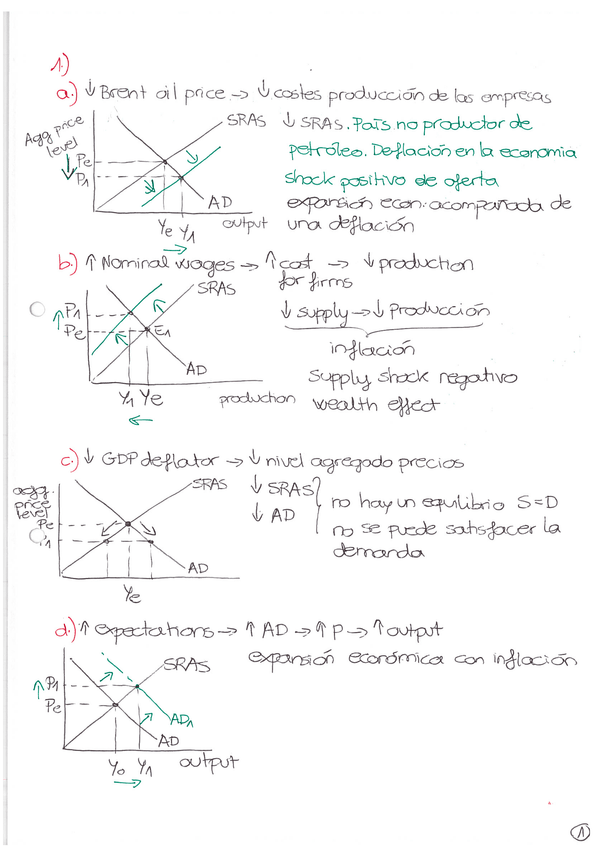 1)
a.) ↓ Brent oil price → ↓ costes producción de las empresas
Agg price level
↓ Pe
P1
SRAS
AD
Ye Y1
→
output
↓ SRAS. País no productor de
petróleo. Deflación en la economia
shock positivo de oferta
expansión econ. acompañada de
una deflación
b.) ↑ Nominal wages → ↑ cost for firms → ↓ production
↑ P1
Pe
SRAS
E1
AD
Y1 Ye
←
production
↓ supply → ↓ Producción
inflación
Supply shock negativo
wealth effect
c.) ↓ GDP deflator → ↓ nivel agregado precios
agg. price level
Pe
P1
SRAS
AD
Ye
↓ SRAS
↓ AD
no hay un equlibrio S=D
no se puede satisfacer la
demanda
d.) ↑ expectations → ↑ AD → ↑ P → ↑ output
↑ P1
Pe
SRAS
AD1
AD
Yo Y1
→
output
expansión económica con inflación
1